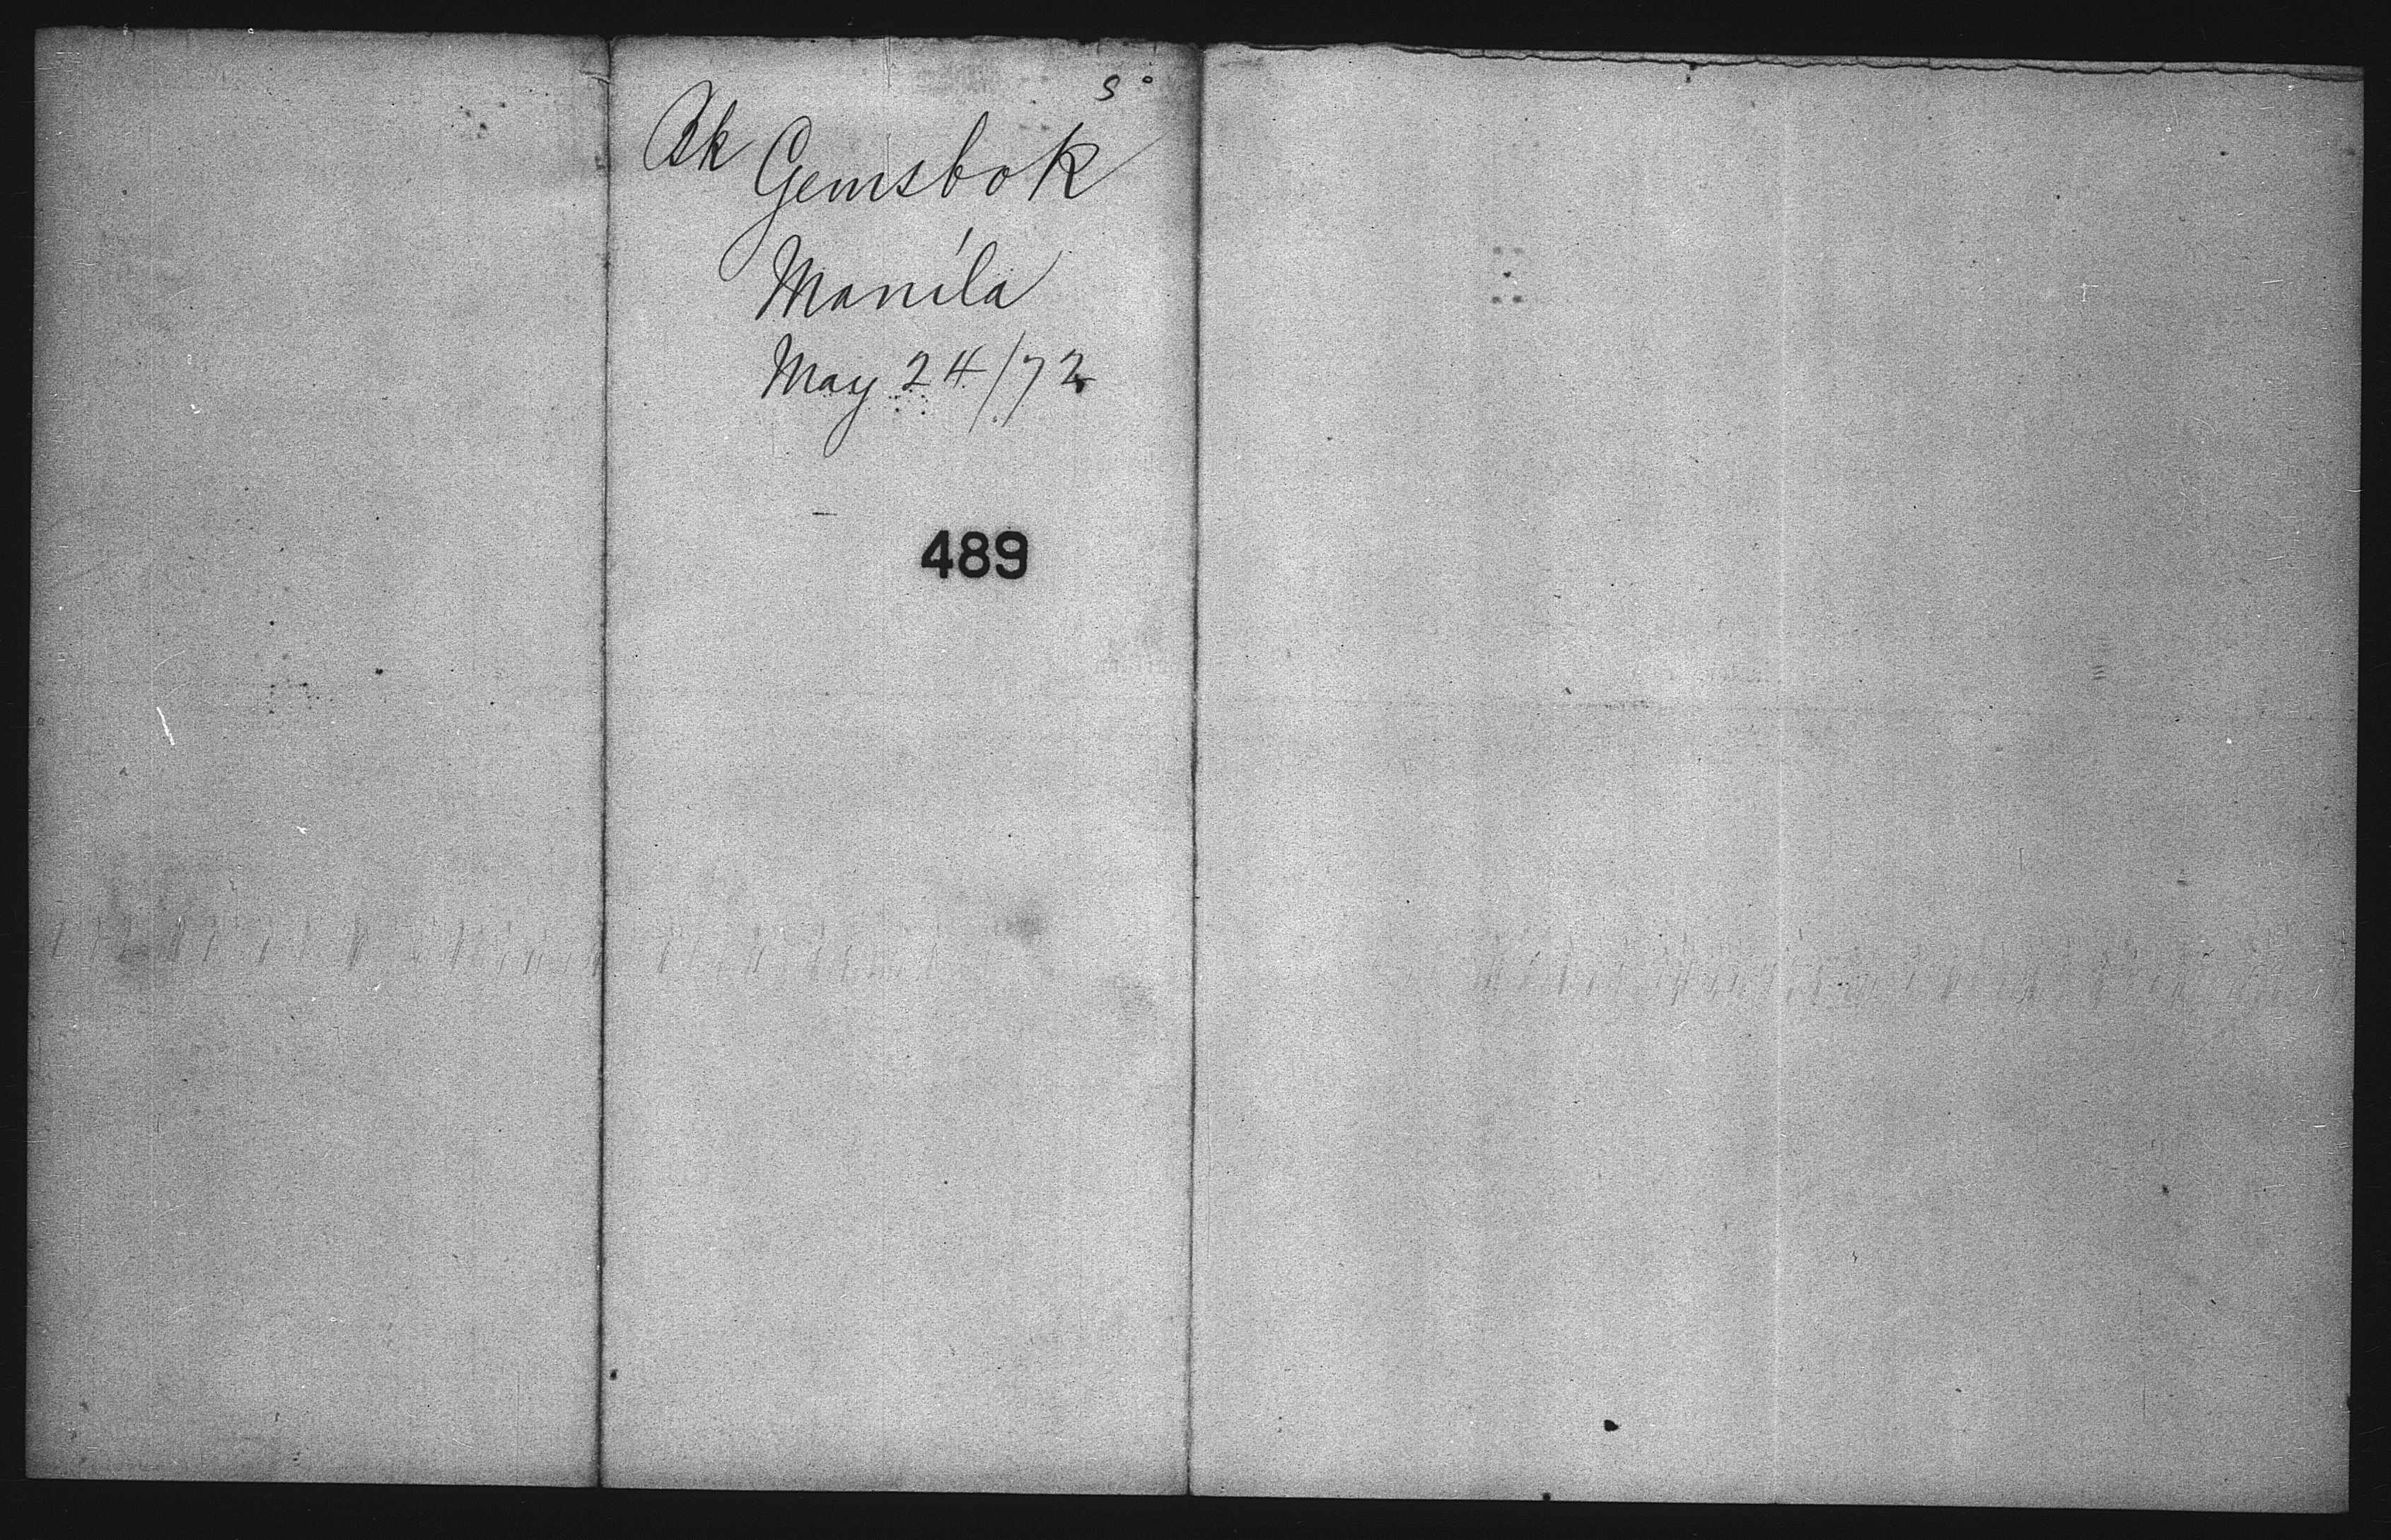 Bk Gemsbok
Manila
May 24/72
489